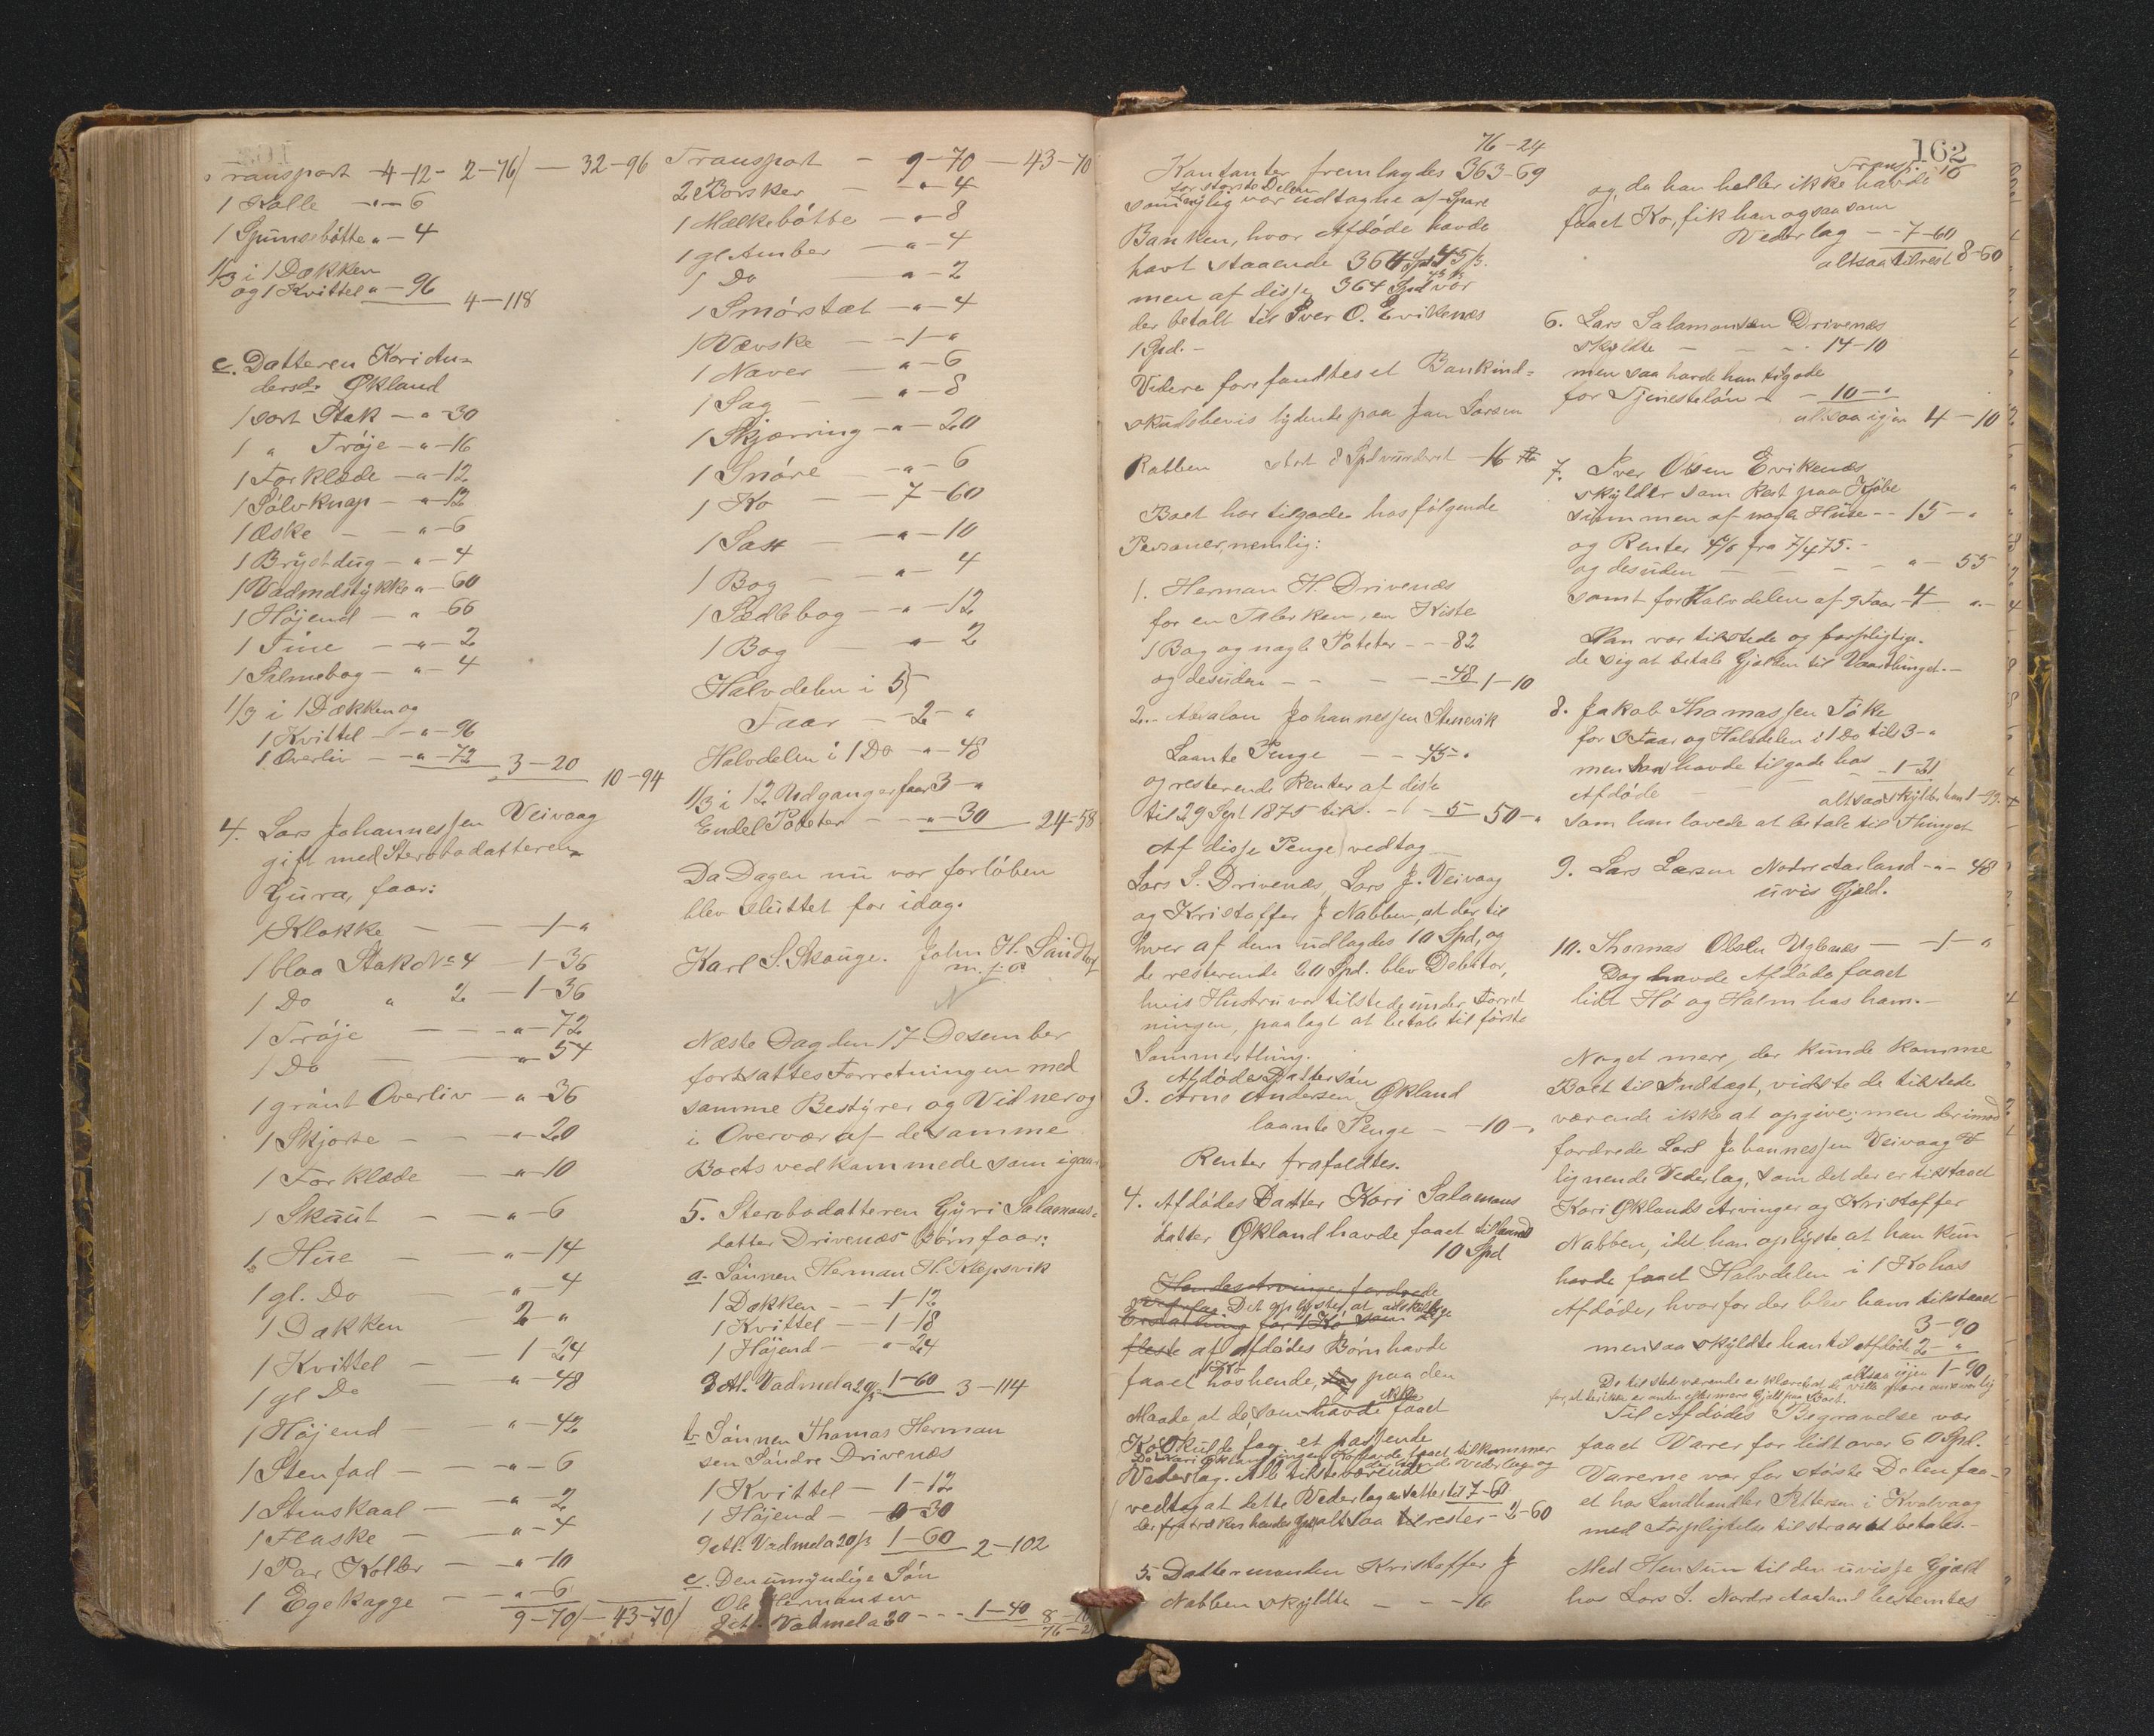 Transport 4-12- 2-76/ — 32-96
1 Kolle — " — 6
1 Spunsbøtte " — 4
1/3 i 1 Dækken
og 1 Kvittel " — 96
4 — 118
c. Datteren Kari An=
dersd. Økland
1 sort Stak — " — 30
1 " Trøje — " — 16
1 Forklæde — " — 12
1 Sølvknap — " — 12
1 Æske — " — 6
1 Brystdug — " — 4
1 Vadmelstykke " — 60
1 Højend — " 66
1 Tine — " — 2
1 Salmebog — " — 4
1/3 i 1 Dækken og
1 Kvittel — " — 96
1 Overliv — " — 72
3 — 20
10 — 94
4. Lars Johannessen Veivaag
gift med Sterbodatteren
Gura, faar:
1 Klokke — 1 — "
1 blaa Stak No 4 — 1 — 36
1 Do " 2 — 1 — 36
1 Trøje — " — 72
1 Do — " — 54
1 grønt Overliv — " — 36
1 Skjorte — " — 20
1 Forklæde — " — 10
1 Skaut — " — 6
1 Hue — " — 14
1 gl. Do — " — 4
1 Dækken 2 — "
1 Kvittel — 1 — 24
1 gl Do — " — 48
1 Højend — " — 42
1 Stenfad — " — 6
1 Stenskaal — " — 2
1 Flaske — " — 4
1 Par Kolber — " — 10
1 Egekagge — " — 6
9 — 70/ — 43 — 70/
Transport — 9 — 70 — 43 — 70
2 Børsker — " — 4
1 Mælkebøtte — " — 8
1 gl Amber — " — 4
1 Do " — 2
1 Smørstæt — " — 4
1 Vævske — 1 — "
1 Naver — " — 6
1 Sag — " — 8
1 Skjærring — " — 20
1 Snøre — " — 6
1 Ko — 7 — 60
1 Sax — " — 10
1 Bog — " — 4
1 Sædlebog — " — 12
1 Bog — " — 2
Halvdelen i 5}
Faar — 2 — "
Halvdelen i 1 Do — " — 48
1/3 i 12 Udgangerfaar 3 — "
Endel Poteter — " — 30 24-58
Da Dagen nu var forløben
blev sluttet for idag.
Karl S. Skauge. John H. Sandto
m.f.P.
N
Næste Dag den 17 Desember
fortsattes Forretningen med
samme Bestyrer og Vidner og
i Overvær af de samme
Boets vedkommede som igaar
5. Sterbodatteren Gyri Salamons=
datter Drivenæs Børn faar:
a. Sønnen Herman H. Klepsvik
1 Dækken — 1-12
1 Kvittel — 1-18
1 Højend — " — 24
9 Al. Vadmel a 20 ß 1-60 3 — 114
b Sønnen Thomas Herman
sen Søndre Drivenæs
1 Kvittel — 1-12
1 Højend — 0-30
9 Al. Vadmel a 20 ß 1-60 2-102
c. Den umyndige Søn
Ole Hermansen
Vadmel a 20 — 1-40
76-24
Kontanter fremlagdes 363-69
for største Delen
som nylig var udtagne af Spare
Banken, hvor Afdøde havde
havt staaende 364 Spd 45 ß.
men af disse 364 Spd 45 ß var
der betalt til Iver O. Evikenes
1 Spd. —
Videre forefandtes et Bankind=
skudsbevis lydende paa Jan Larsen
Rabben stort 8 Spd vurderet — 16
Boet har tilgode hos følgende
Personer, nemlig:
1. Herman H. Drivenæs
for en Talerken, en Kiste
1 Bog og nogle Poteter — 82
og desuden — 48 1-10
2. Absalon Johannessen Stenevik
Laante Penge — 45 — "
og resterende Renter af disse
til 29 Sept 1875 tils. — 5 50 — "
Af disse Penge vedtog
Lars S. Drivenæs, Lars J. Veivaag
og Kristoffer J Nabben, at der til
hver af dem udlagdes 10 Spd, og
de resterende 20 Spd. blev Debitor,
hvis Hustru var tilstede under Forret
ningen, paalagt at betale til første
Sommerthing.
Afdødes Dattersøn
3. Arne Andersen Økland
laante Penge — 10 — "
Renter frafaldtes.
4. Afdødes Datter Kari Salamons
datter Økland havde faaet tillaans
10 Spd
Hendes Arvinger fordrede
Vederlag. Det oplystes, at adskillige
Erstatning for 1 Ko som de
fleste af Afdødes Børn havde
faaet 1 Ko hos hende, og paa den
Maade, at de, som ikke havde faaet
Ko skulde faa et passende
Da Kari Økland ingen Ko havde faaet tilkommer
der hende Vederlag og
Vederlag. Alle tilstedeværende
vedtog at dette Vederlag ansættes til 7-60
der fratrækkes hendes Gjæld altsaa tilrester — 2-60
5. Dattermanden Kristoffer J
Nabben skyldte — 16
162
Transp. 16
og da han heller ikke havde
faaet Ko, fik han ogsaa som
Vederlag — 7-60
altsaa tilrest 8-60
6. Lars Salamonsen Drivenæs
skyldte — 14-10
men saa havde han tilgode
for Tjenesteløn — 10 — "
altsaa igjen 4 — 10
7. Iver Olsen Evikenæs
skyldte som Rest paa Kjøbe
summen af nogle Huse — 15 — "
og Renter 4% fra 7/4 75. —
og desuden — " — 55
samt for Halvdelen af 9 Faar 4 — "
Han var tilstede og forpligtige-
de sig at betale Gjælden til Vaarthinget. —
8. Jakob Thomassen Toke
for 3 Faar og Halvdelen i 1 Do til 3 — "
men han havde tilgode hos — 1-21
Afdøde — altsaa skylder han 1-99.
som han lovede at betale til Thinget
9. Lars Larsen Nordre Aarland — " — 48
uvis Gjæld.
10. Thomas Olsen Uglenæs — 1 — "
Dog havde Afdøde faaet
lidt Hø og Halm hos ham. —
Noget mere, der kunde komme
Boet til Indtægt, vidste de tilstede
værende ikke at opgive; men derimod
fordrede Lars Johannessen Veivaag et
lignende Vederlag, som det der er tilstaaet
Kari Øklands Arvinger og Kristoffer
Nabben, idet han oplyste at han kun
havde faaet Halvdelen i 1 Ko hos
Afdøde, hvorfor der blev ham tilstaaet
3-90
men saa skyldte han til Afdøde 2 — "
altsaa igjen 1-90
De tilstedeværende erklærede at de ville være ansvarlig
for, at der ikke er anden eller mere Gjæld paa Boet.
Til Afdødes Begravelse var
faaet Varer for lidt over 60 Spd.
Varerne var for største Delen faa-
et hos Landhandler Pettersen i Kvalvaag
med Forpligtelse til straks at betales. —
Med Hensun til den uvisse Gjæld
hos Lars L. Nordre Aarland bestemtes